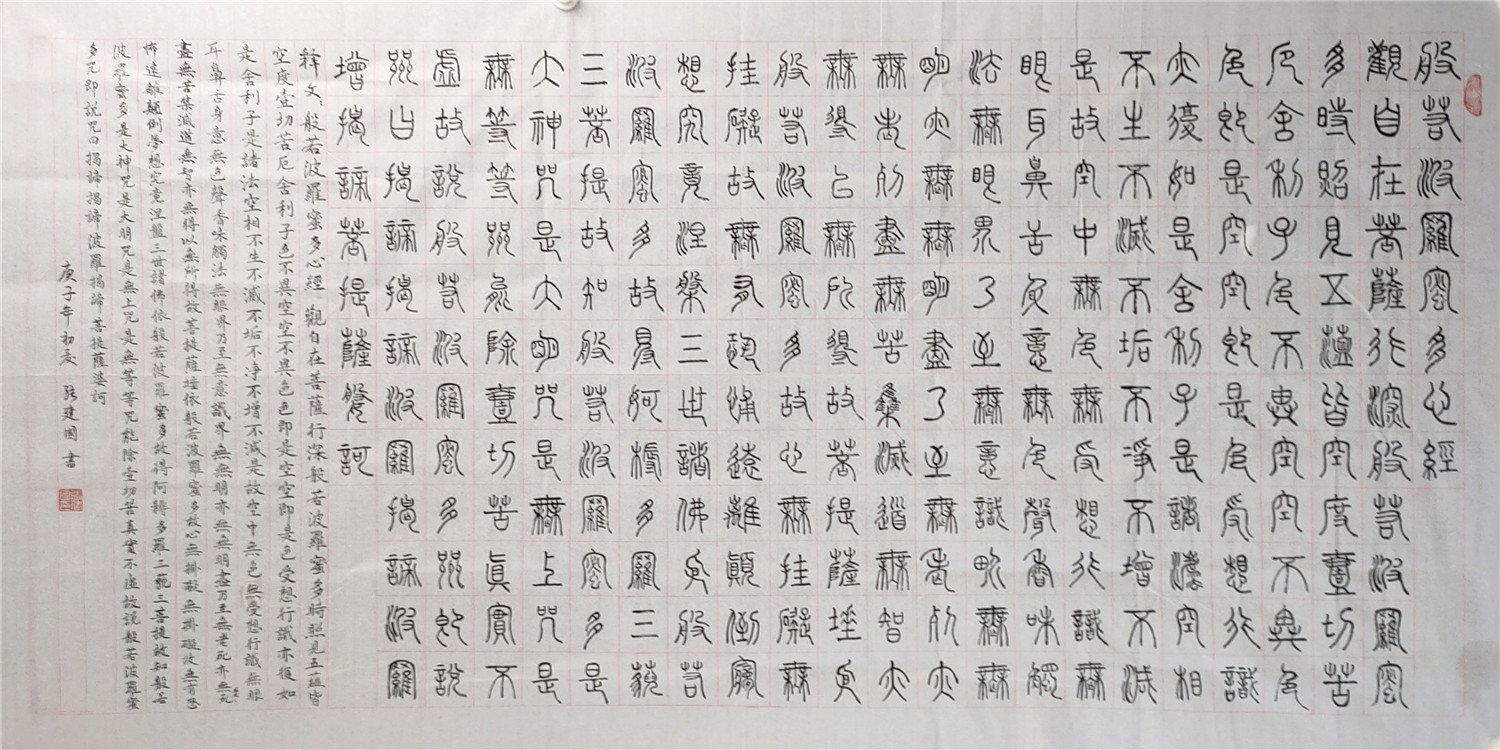 般若波羅密多心經
觀自在菩薩行深般若波羅密
多時照見五蘊皆空度壹切苦
厄舍利子色不異空空不異色
色即是空空即是色受想行識
亦復如是舍利子是諸法空相
不生不滅不垢不淨不增不減
是故空中無色無受想行識無
眼耳鼻舌身意無色聲香味觸
法無眼界乃至無意識界無無
明亦無無明盡乃至無老死亦
無老死盡無苦集滅道無智亦
無得以無所得故菩提薩埵依
般若波羅密多故心無挂礙無
挂礙故無有恐怖遠離顛倒夢
想究竟涅槃三世諸佛依般若
波羅密多故得阿耨多羅三藐
三菩提故知般若波羅密多是
大神咒是大明咒是無上咒是
無等等咒能除壹切苦真實不
虛故說般若波羅密多咒即說
咒曰揭諦揭諦波羅揭諦波羅
增揭諦菩提薩婆訶
释文:般若波羅蜜多心經 觀自在菩薩行深般若波羅蜜多時照見五蕴皆
空度壹切苦厄舍利子色不異空空不異色色即是空空即是色受想行識亦復如
是舍利子是諸法空相不生不滅不垢不净不增不減是故空中無色無受想行識無眼
耳鼻舌身意無色聲香味觸法無眼界乃至無意識界無無明亦無無明盡乃至無老死亦無老死
盡無苦集滅道無智亦無得以無所得故菩提薩埵依般若波羅蜜多故心無掛礙無掛礙故無有恐
怖遠離顛倒夢想究竟涅盤三世諸佛依般若波羅蜜多故得阿耨多羅三藐三菩提故知般若
波羅蜜多是大神咒是大明咒是無上咒是無等等咒能除壹切苦真實不虛故說般若波羅蜜
多咒即說咒曰揭諦揭諦波羅揭諦菩提薩婆訶
庚子年初夏 張建國書